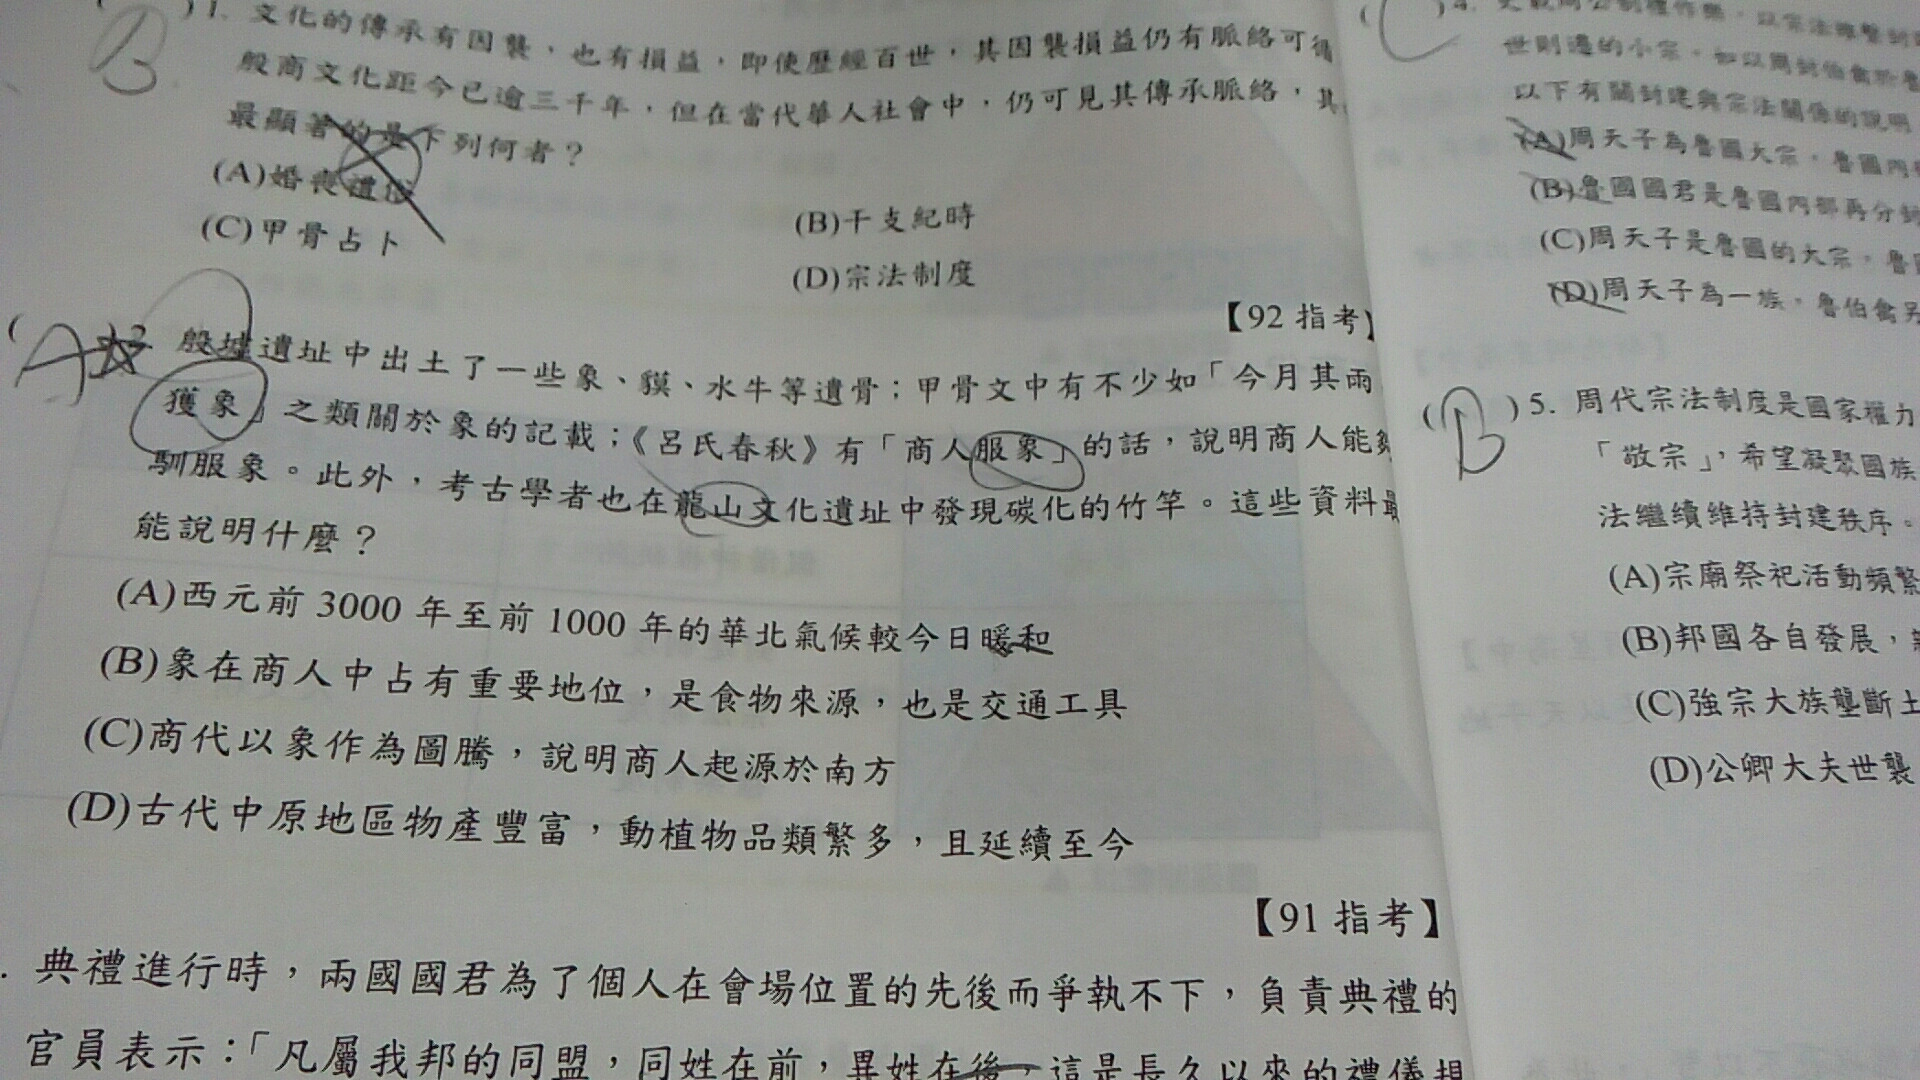 1. 文化的傳承有因襲，也有損益，即使歷經百世，其因襲損益仍有脈絡可循
殷商文化距今已逾三千年，但在當代華人社會中，仍可見其傳承脈絡，其
最顯著的是下列何者？
(A)婚喪禮俗
(B)干支紀時
(C)甲骨占卜
(D)宗法制度
【92 指考】
B
A
2. 殷墟遺址中出土了一些象、貘、水牛等遺骨；甲骨文中有不少如「今月其雨
獲象」之類關於象的記載；《呂氏春秋》有「商人服象」的話，說明商人能夠
馴服象。此外，考古學者也在龍山文化遺址中發現碳化的竹竿。這些資料最
能說明什麼？
(A)西元前 3000 年至前 1000 年的華北氣候較今日暖和
(B)象在商人中占有重要地位，是食物來源，也是交通工具
(C)商代以象作為圖騰，說明商人起源於南方
(D)古代中原地區物產豐富，動植物品類繁多，且延續至今
【91 指考】
. 典禮進行時，兩國國君為了個人在會場位置的先後而爭執不下，負責典禮的
官員表示：「凡屬我邦的同盟，同姓在前，異姓在後，這是長久以來的禮儀規
C
)4. 史載周公制禮作樂，以宗法維繫封
世則遷的小宗。如以周封伯禽於魯
以下有關封建與宗法關係的說明
(A)周天子為魯國大宗，魯國內
(B)魯國國君是魯國內部再分封
(C)周天子是魯國的大宗，魯國
(D)周天子為一族，魯伯禽另
B
( )5. 周代宗法制度是國家權力
「敬宗」，希望凝聚國族
法繼續維持封建秩序。
(A)宗廟祭祀活動頻繁
(B)邦國各自發展，
(C)強宗大族壟斷土
(D)公卿大夫世襲